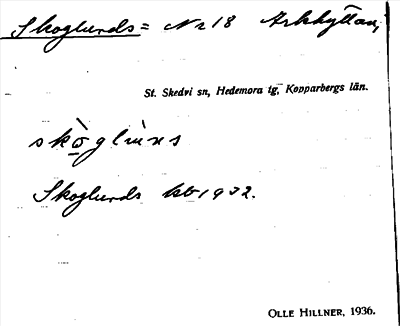 Skoglunds = Nr 18 Arkhyttan,
St. Skedvi sn, Hedemora tg, Kopparbergs län.
skò̱glùns
Skoglunds kb 1932.
OLLE HILLNER, 1936.